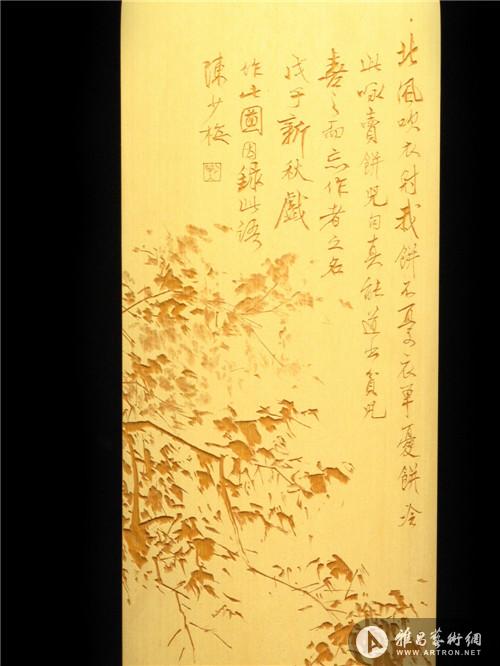 北風吹衣射我餅不憂衣單憂餅冷
此咏賣餅兒句真能道出貧兒
喜之而忘作者之名
戊子新秋戲
作此圖因錄此語
陳少梅
雅昌藝術網
WWW.ARTRON.NET